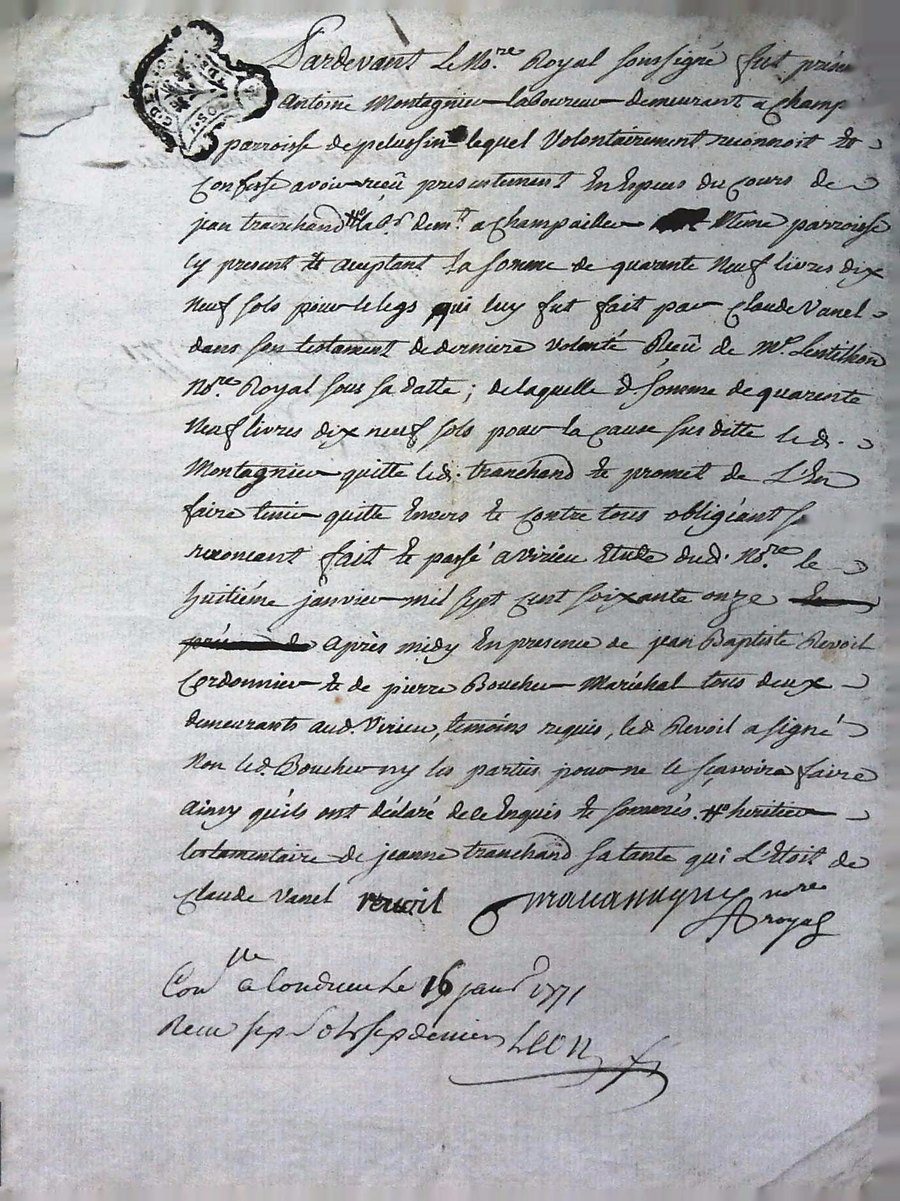 Pardevant Le No.re Royal soussigné fut prés
Antoine Montagnier laboureur demeurant a Champ
parroisse de pelussin lequel Volontairement reconnoit et
Confesse avoir reçû presentement En Espèces du Cours de
jean tranchand # lab.r dem.t a Champailler même parroisse
Cy present et acceptant La somme de quarente Neuf livres dix
Neuf sols pour le legs qui luy fut fait par Claude Vanel
dans son testament de derniere volonté Reçû de M.e Lentillon
No.re Royal sous sa datte ; de laquelle d. somme de quarente
Neuf livres dix neuf sols pour la cause sus ditte led.
Montagnier quitte led. tranchand et promet de L'En
faire tenir quitte Envers et Contre tous obligéant
renonceant fait et passé a virieu Etude dud. No.re le
huitiéme janvier mil sept cent soixante onze
après midy En presence de jean Baptiste Revoil
Cordonnier et de pierre Boucher Maréchal tous deux
demeurants aud. Virieu, temoins requis, led Revoil a signé
Non led. Boucher ny les parties pour ne le sçavoir faire
ainsy qu'ils ont déclaré de ce Enquis et sommés. # heritier
testamentaire de jeanne tranchand sa tante qui L'Etoit de
Claude Vanel revoil no.re
royal
Con.lle a Condrieu Le 16 janv.r 1771
Recu sep sols sep deniers Leon